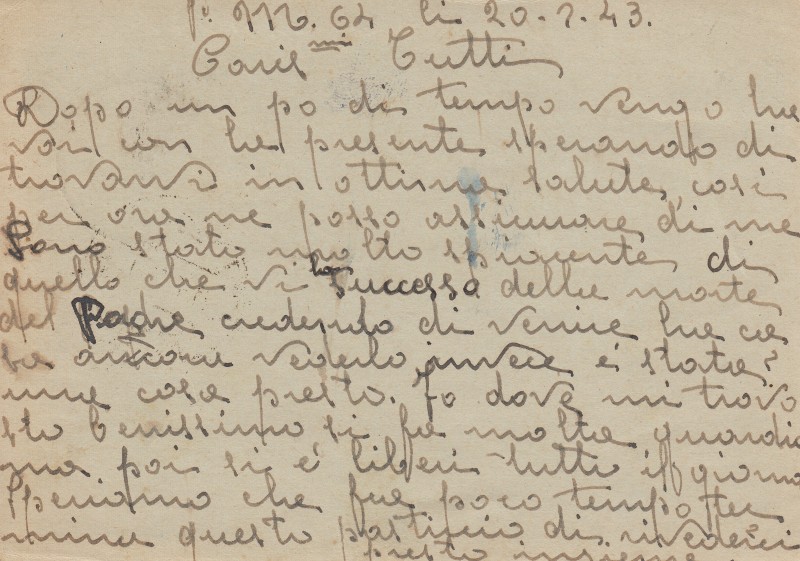 P. M. 64 li 20-1-43.
Carissimi Tutti
Dopo un po di tempo vengo ha
voi con la presente sperando di
trovarvi in ottima salute, così
per ora ne posso assicurare di me
Sono stato molto spiacente di
quello che vi ha successo della morte
del Padre credendo di venire ha ca
sa ancora vederlo invece é stata
una cosa presto. Io dove mi trovo
sto benissimo, si fa molta guardia
ma poi si é liberi tutto il giorno
Speriamo che fra poco tempo ter
mina questo di rivederci
presto insieme